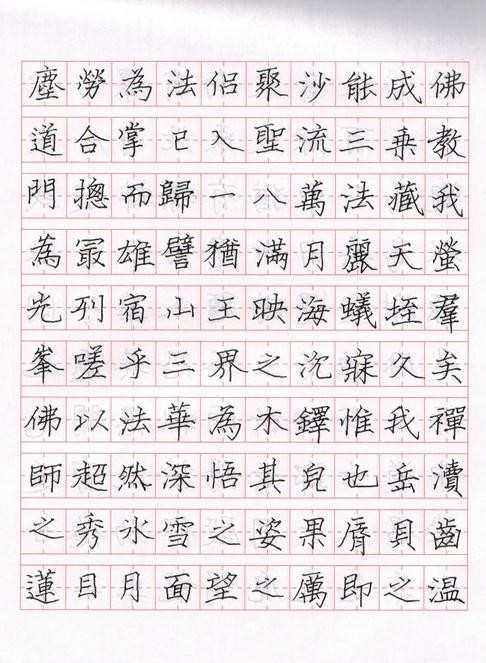 塵勞為法侶聚沙能成佛
道合掌已入聖流三乗教
門摠而歸一八萬法藏我
為冣雄譬猶滿月麗天螢
光列宿山王映海蟻垤羣
峯嗟乎三界之沉寐久矣
佛以法華為木鐸惟我禪
師超然深悟其皃也岳瀆
之秀氷雪之姿果脣貝齒
蓮目月面望之厲即之温